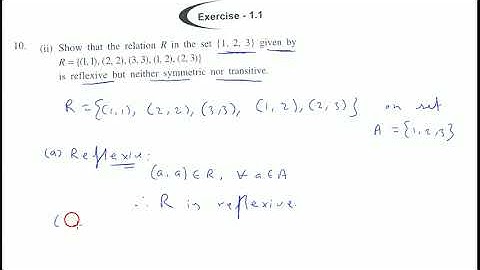 Exercise - 1.1
10. (ii) Show that the relation R in the set {1, 2, 3} given by
R = {(1, 1), (2, 2), (3, 3), (1, 2), (2, 3)}
is reflexive but neither symmetric nor transitive.
R = {(1,1), (2,2), (3,3), (1,2), (2,3)} on set
A = {1,2,3}
(a) Reflexive:
(a, a) ∈ R, ∀ a ∈ A
∴ R is reflexive.
(